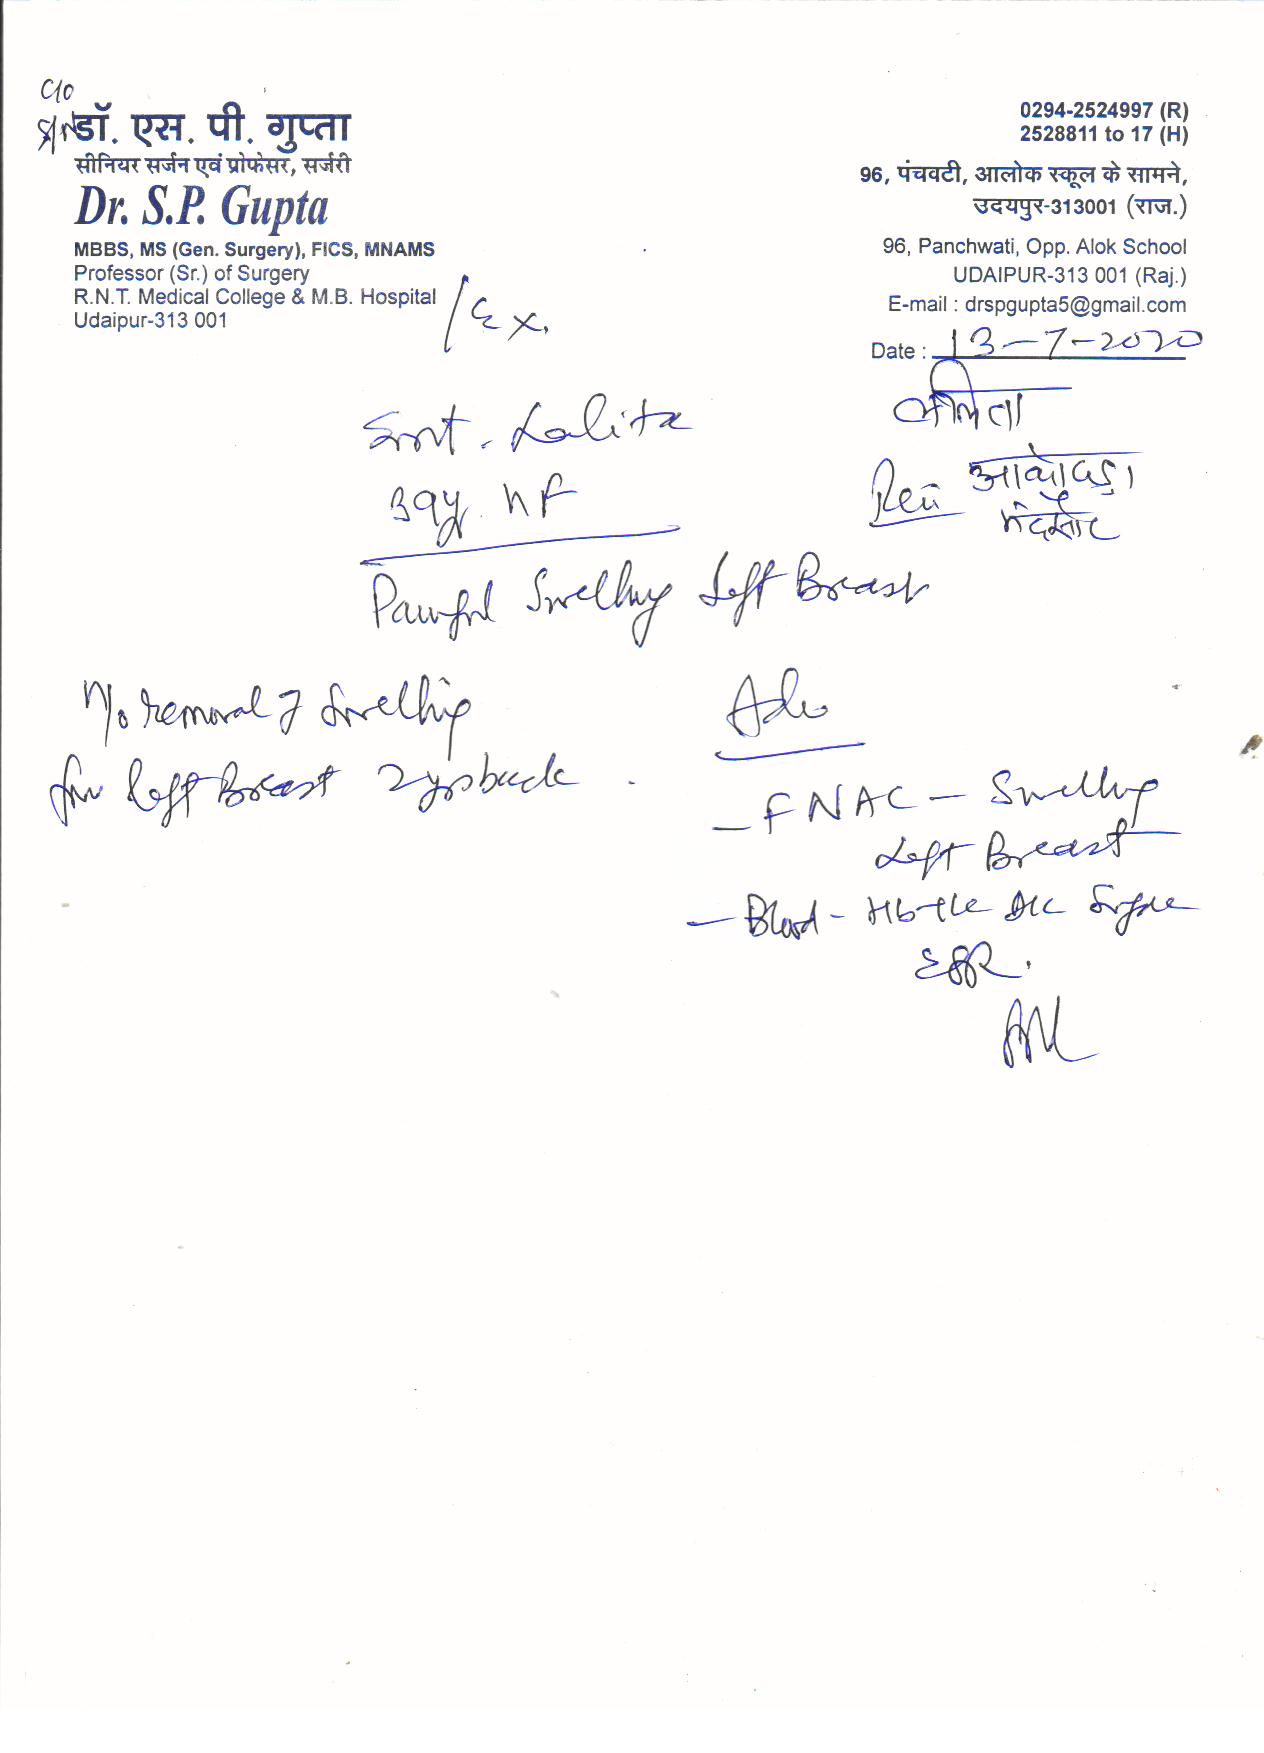 C/o
डॉ. एस. पी. गुप्ता
सीनियर सर्जन एवं प्रोफेसर, सर्जरी
Dr. S.P. Gupta
MBBS, MS (Gen. Surgery), FICS, MNAMS
Professor (Sr.) of Surgery
R.N.T. Medical College & M.B. Hospital
Udaipur-313 001
0294-2524997 (R)
2528811 to 17 (H)
96, पंचवटी, आलोक स्कूल के सामने,
उदयपुर-313001 (राज.)
96, Panchwati, Opp. Alok School
UDAIPUR-313 001 (Raj.)
E-mail : drspgupta5@gmail.com
Date : 13-7-2020
Ex.
Smt. Lalita
39y. HF
मंदसौर
Painful Swelling Left Breast
H/o removal of Swelling
for left Breast 2yrs back
Adv
- FNAC - Swelling
Left Breast
- Blood - Hb TLC DLC Sugar
ESR.